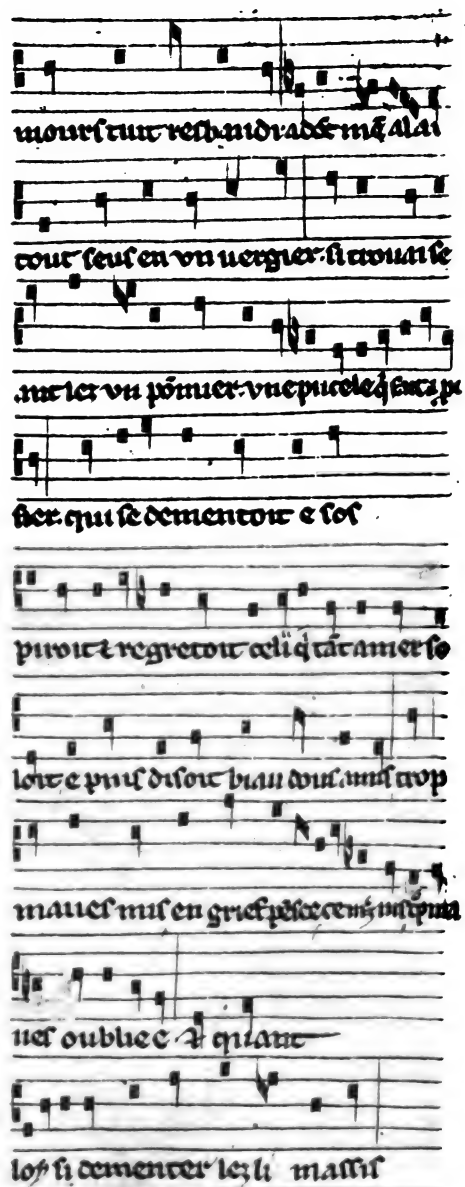 mours tuit resbaudira dõt mẽ alai
tout seus en vn uergier. si trouai se
ant ler vn põmier. vne pucele q̃ fait a pi
sier. qui se dementoit e sos
piroit ⁊ regretoit celi q̃ tãt amer so
loit e puis disoit biau dous amis trop
maues mis en grief pẽsee
ues oubliee ⁊ quant
loy si dementer lez li massis